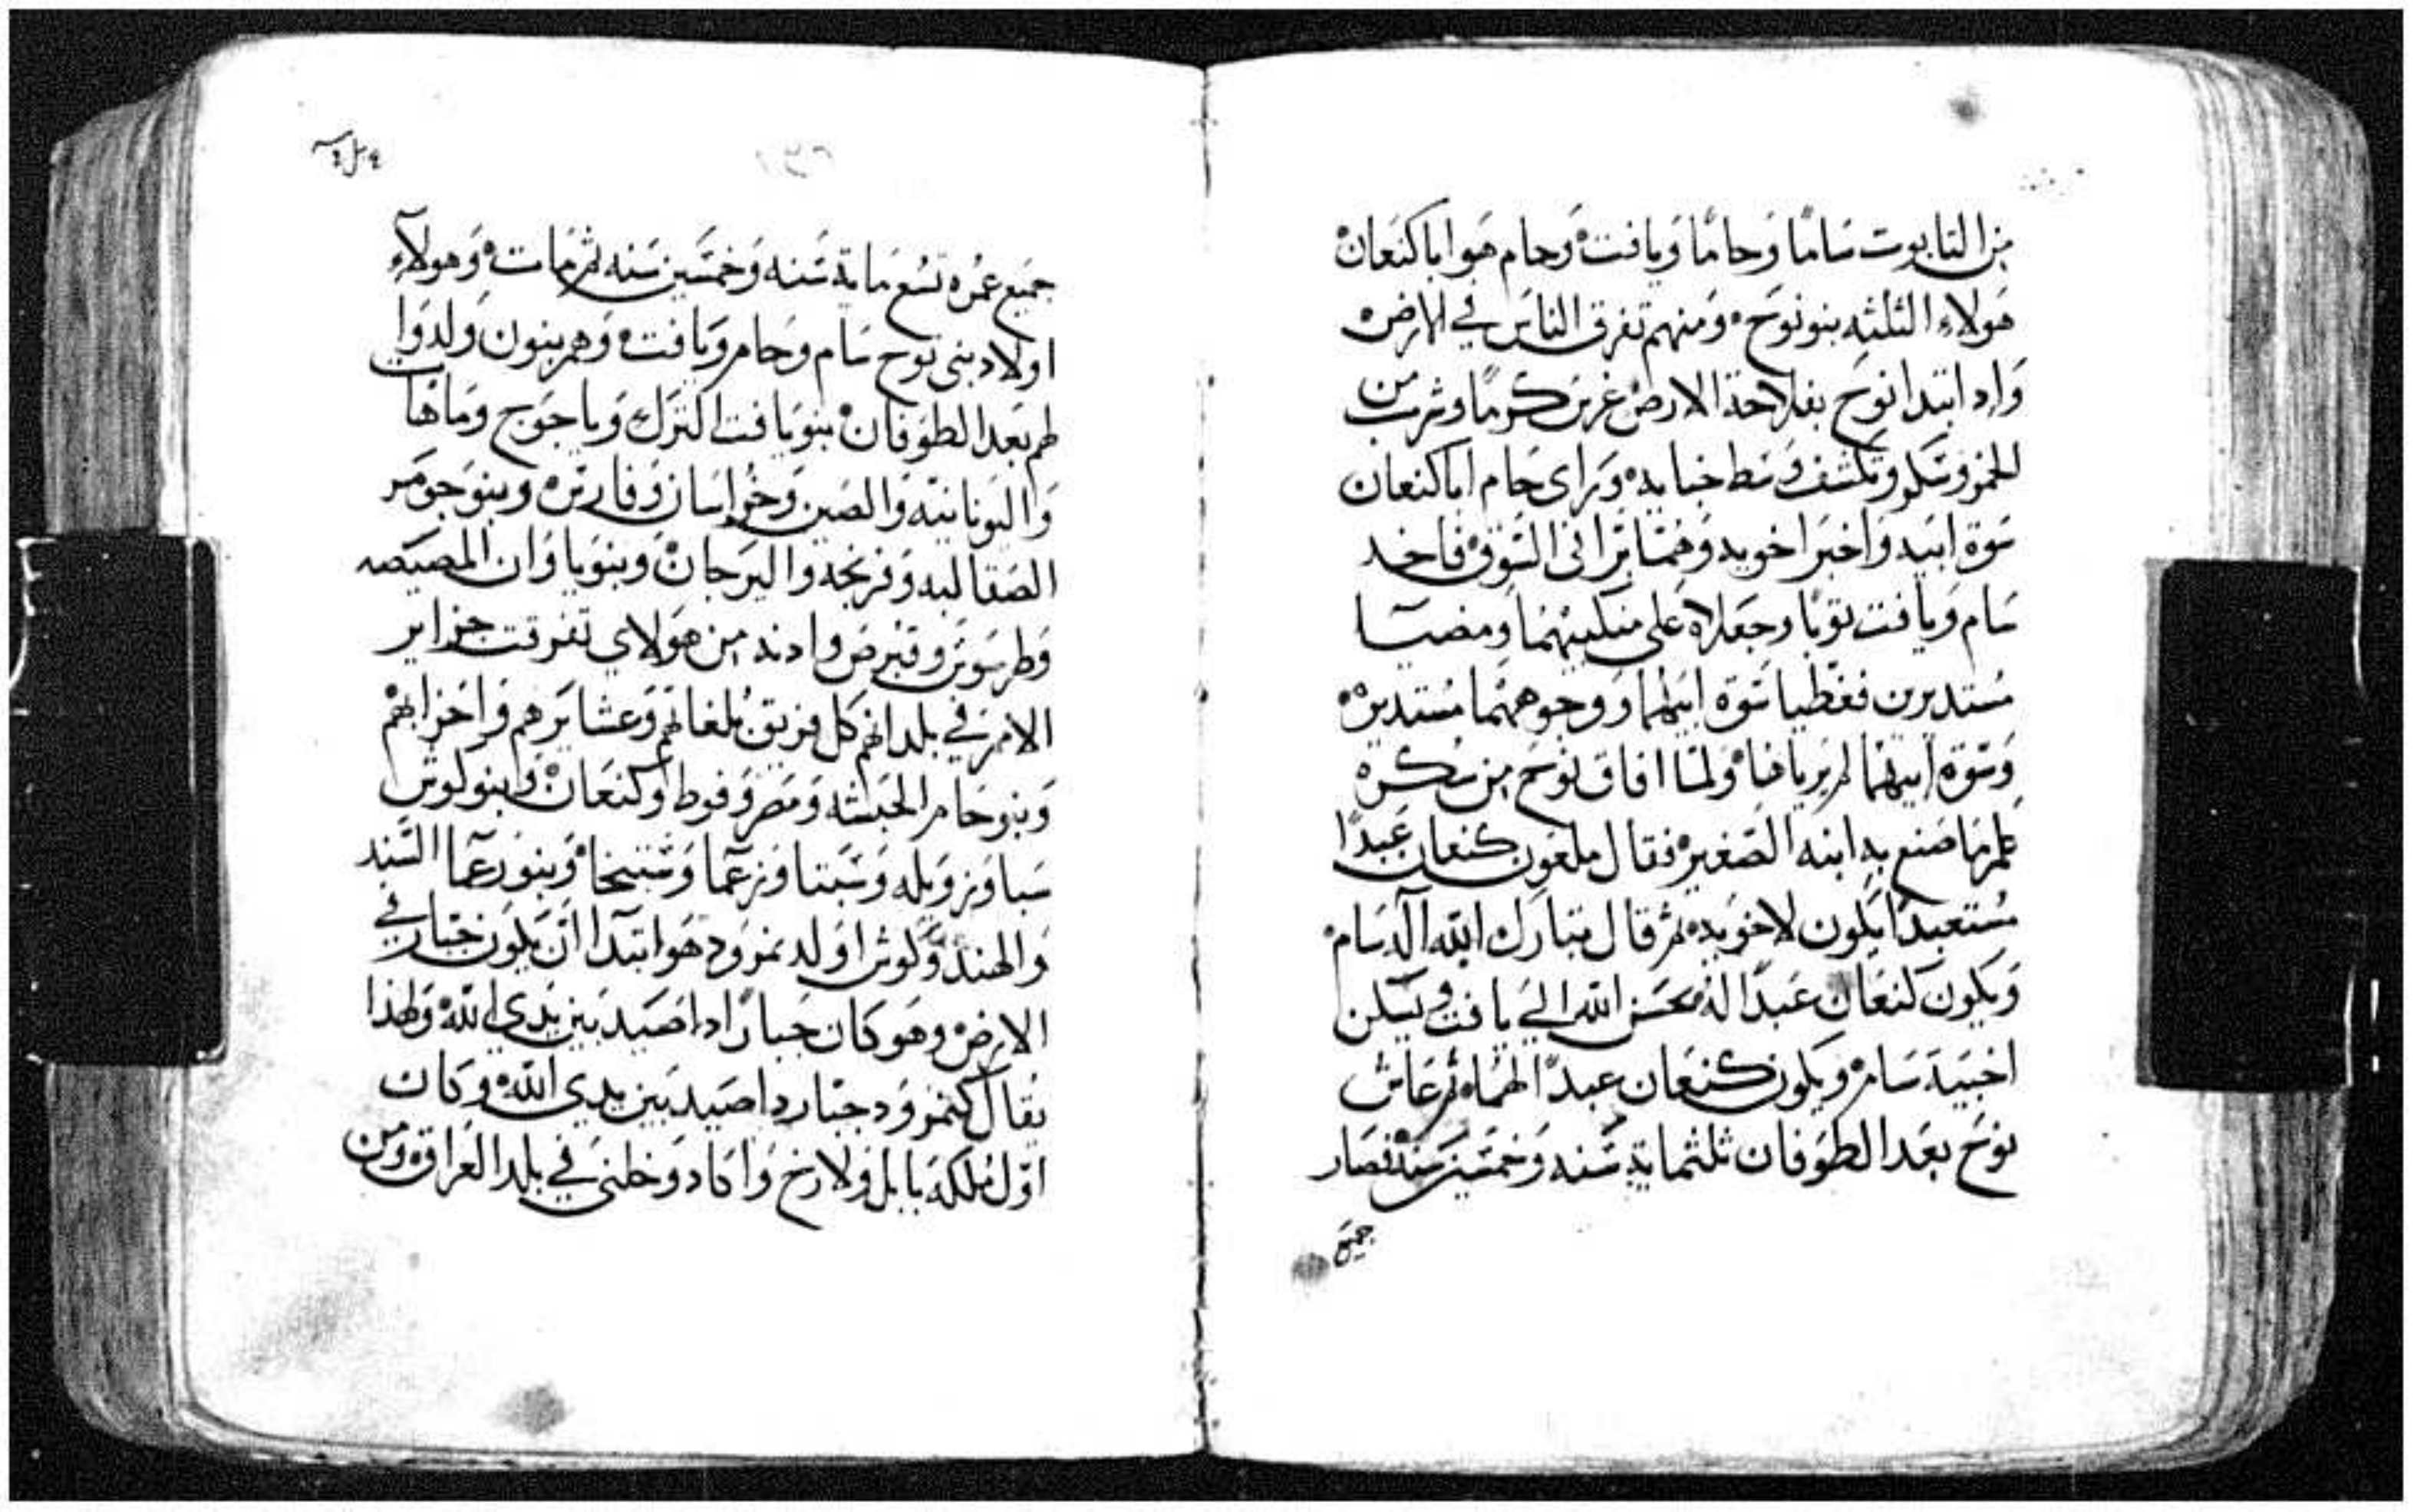 من التابوت سَامًا وَحامًا وَيافت وَحام هَو اباكنعَان
هَولاءِ الثلثه بنو نوَح وَمنهم تفرق الناسَ في الارض
وَاد ابتدا نوَح بفلاحة الارض غرس كرمًا وشرب من
الخمر وسَكر وتكشف وسَط خبايه وَراى حَام اباكنعان
سَوة ابيه وَاخبرَ اخويه وَهمَا برّا في السَوق فاخد
سَام وَيافت ثوبًا وجعَلاه عَلى منكبيهمَا ومضيَا
مسَتديرين فغطيا سَوة ابيهما ووجوههمَا مسَتديره
وَسَوة ابيهمَا لم يرياهَا وَلمَا افاق نوَح من سَكره
عَلم مَا صَنع به ابنه الصَغير فقال ملعَون كنعان عَبدًا
مسُتعبدًا يكون لاخوَيه ثم قال متبارك الله اله سَام
وَيكون كنعَان عَبدًا له محسَن الله الي يافت وَيسَكن
اخبية سَام ويكون كنعَان عبدًا لهمَا ثم عَاش
نوَح بعَد الطوَفان ثلثماية سَنه وَخمسَين سَنه فصَار
جميَع
جميَع عمُره تسَع مَاية سَنه وَخمسَين سَنه ثم مَات وَهولاَءِ
اولاد بني نوَح سَام وحَام وَيافت وَهم بنون وَلدوَا
لهم بعَد الطوَفان بنوَ يافت الترَك وَياجوَج وَمَاهَاب
وَاليوَنانيَه وَالصَين وَخرُاسَان وَفارسَ وَبنوَ جوَمَر
الصَقالبه وَفرنجَه وَالبرَجان وَبنوَ ياوَان المصَيصَه
وَطرسَوسَ وقبرصَ وَادنه من هَولاي تفرقت جزاير
الامم في بلدانهم كل فريق بلغاتهم وَعشايَرهم وَاحزابهم
وَبنو حَام الحَبشه وَمصَر وَفوط وَكنعَان وَبنو كوش
سَبا وَزويله وَسَبتا وَرعَما وَسَبتخا وَبنوَ رعَما السَند
وَالهند وَكوش اوَلد نمرَود هَو ابتدا ان يكَون جبَار في
الارض وهَو كان جَبارًا داصَيد بين يَدي الله وَلهذا
يقال كنمروَد جبار داصَيد بَين يدي الله وَكان
اوّل مُلكه بابل وَلارخ وَاكاد وَخلني في بلد العَراق وَمن